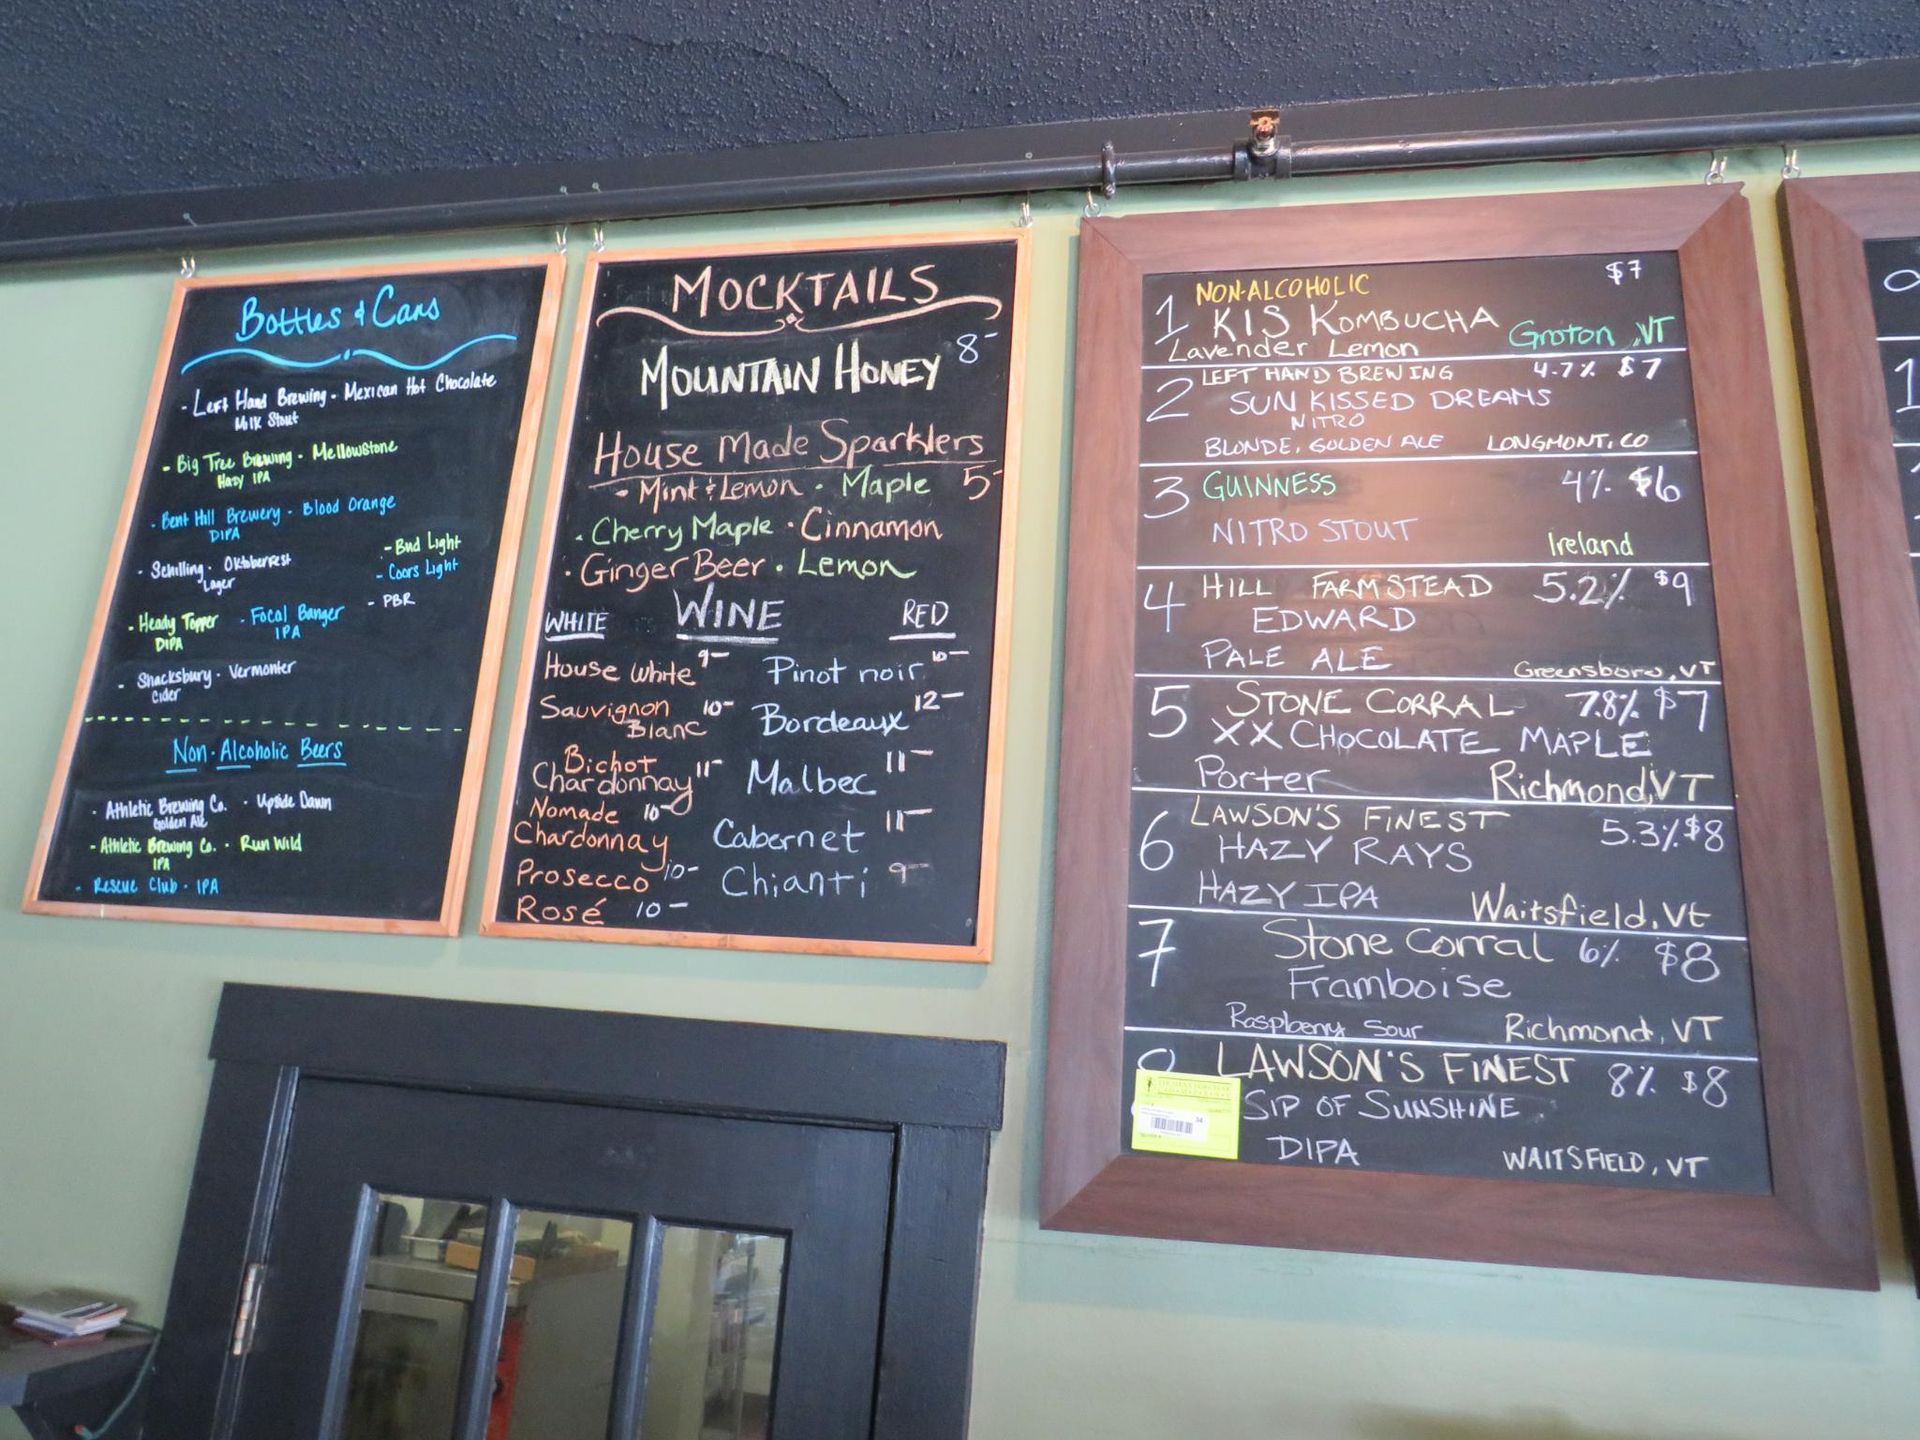 Bottles & Cans
- Left Hand Brewing - Mexican Hot Chocolate
Milk Stout
- Big Tree Brewing - Mellowstone
Hazy IPA
- Bent Hill Brewery - Blood Orange
DIPA
- Schilling - Oktoberfest
Lager
- Bud Light
- Coors Light
- PBR
- Heady Topper
DIPA
- Focal Banger
IPA
- Shacksbury - Vermonter
Cider
Non-Alcoholic Beers
- Athletic Brewing Co. - Upside Dawn
Golden Ale
- Athletic Brewing Co. - Run Wild
IPA
- Rescue Club - IPA
MOCKTAILS
MOUNTAIN HONEY 8-
House Made Sparklers
- Mint & Lemon - Maple 5-
- Cherry Maple - Cinnamon
- Ginger Beer - Lemon
WHITE WINE RED
House White 9-
Sauvignon 10-
Blanc
Bichot
Chardonnay 11-
Nomade 10-
Chardonnay
Prosecco 10-
Rosé 10-
Pinot noir 10-
Bordeaux 12-
Malbec 11-
Cabernet 11-
Chianti 9-
1 NON-ALCOHOLIC $7
KIS KOMBUCHA Groton, VT
Lavender Lemon
2 LEFT HAND BREWING 4.7% $7
SUN KISSED DREAMS
NITRO
BLONDE, GOLDEN ALE LONGMONT, CO
3 GUINNESS 4% $6
NITRO STOUT
Ireland
4 HILL FARMSTEAD 5.2% $9
EDWARD
PALE ALE Greensboro, VT
5 STONE CORRAL 7.8% $7
XX CHOCOLATE MAPLE
Porter Richmond, VT
6 LAWSON'S FINEST 5.3% $8
HAZY RAYS
HAZY IPA Waitsfield, Vt
7 Stone Corral 6% $8
Framboise
Raspberry Sour Richmond, VT
LAWSON'S FINEST 8% $8
SIP OF SUNSHINE
DIPA WAITSFIELD, VT